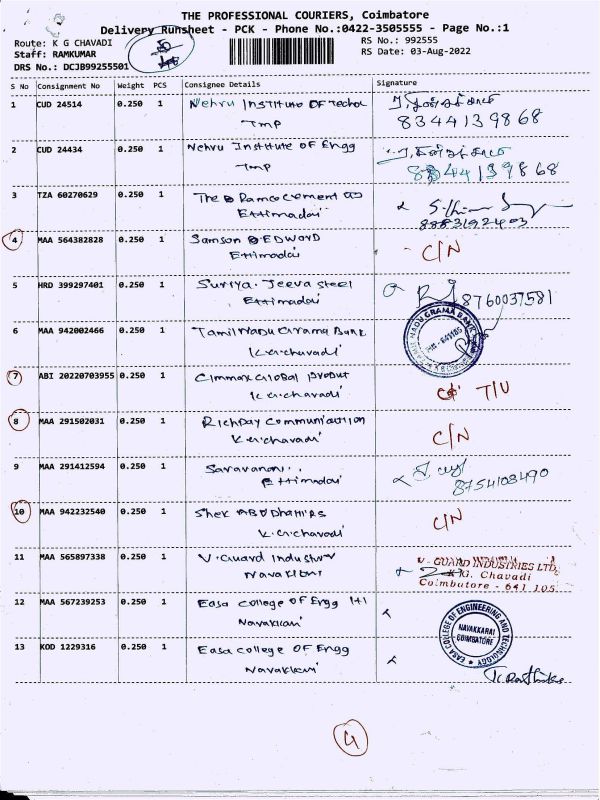 THE PROFESSIONAL COURIERS, Coimbatore
Delivery Runsheet - PCK - Phone No.:0422-3505555 - Page No.:1
Route: K G CHAVADI
RS No.: 992555
Staff: RAMKUMAR
RS Date: 03-Aug-2022
DRS No.: DCJB99255501
S No Consignment No Weight PCS Consignee Details Signature
1 CUD 24514 0.250 1 Nehru Institute OF Techol
TMP
8344139868
2 CUD 24434 0.250 1 Nehru Institute OF Engg
TMP
8344139868
3 TZA 60270629 0.250 1 The Ramco cement
Ettimadai
4 MAA 564382828 0.250 1 Samson EDWORD C/N
Ettimadai
5 HRD 399297401 0.250 1 Suriya. Jeeva steel
Ettimadai
8760037581
6 MAA 942002466 0.250 1 Tamil Nadu Grama Bank
K.G.chavadi
7 ABI 20220703955 0.250 1 T/U
K.G.chavadi
8 MAA 291502031 0.250 1 Richday Communication C/N
K.G.chavadi
9 MAA 291412594 0.250 1 Saravanan..
Ettimadai
8754108490
10 MAA 942232540 0.250 1 Shek C/N
K.G.chavadi
11 MAA 565897338 0.250 1 V.Guard Industry
V - GUARD INDUSTRIES LTD.
K.G. Chavadi
Coimbatore - 641 105
12 MAA 567239253 0.250 1 Easa college OF Engg
EASA COLLEGE OF ENGINEERING AND TECHNOLOGY
NAVAKKARAI
COIMBATORE
13 KOD 1229316 0.250 1 Easa college OF Engg
4